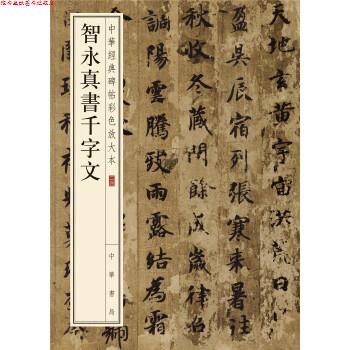 中華經典碑帖彩色放大本
智永真書千字文
中華書局
天地玄黄宇宙洪荒日
盈昃辰宿列張寒来暑往
秋收冬藏閏餘成歲律召
調陽雲騰致雨露結為霜